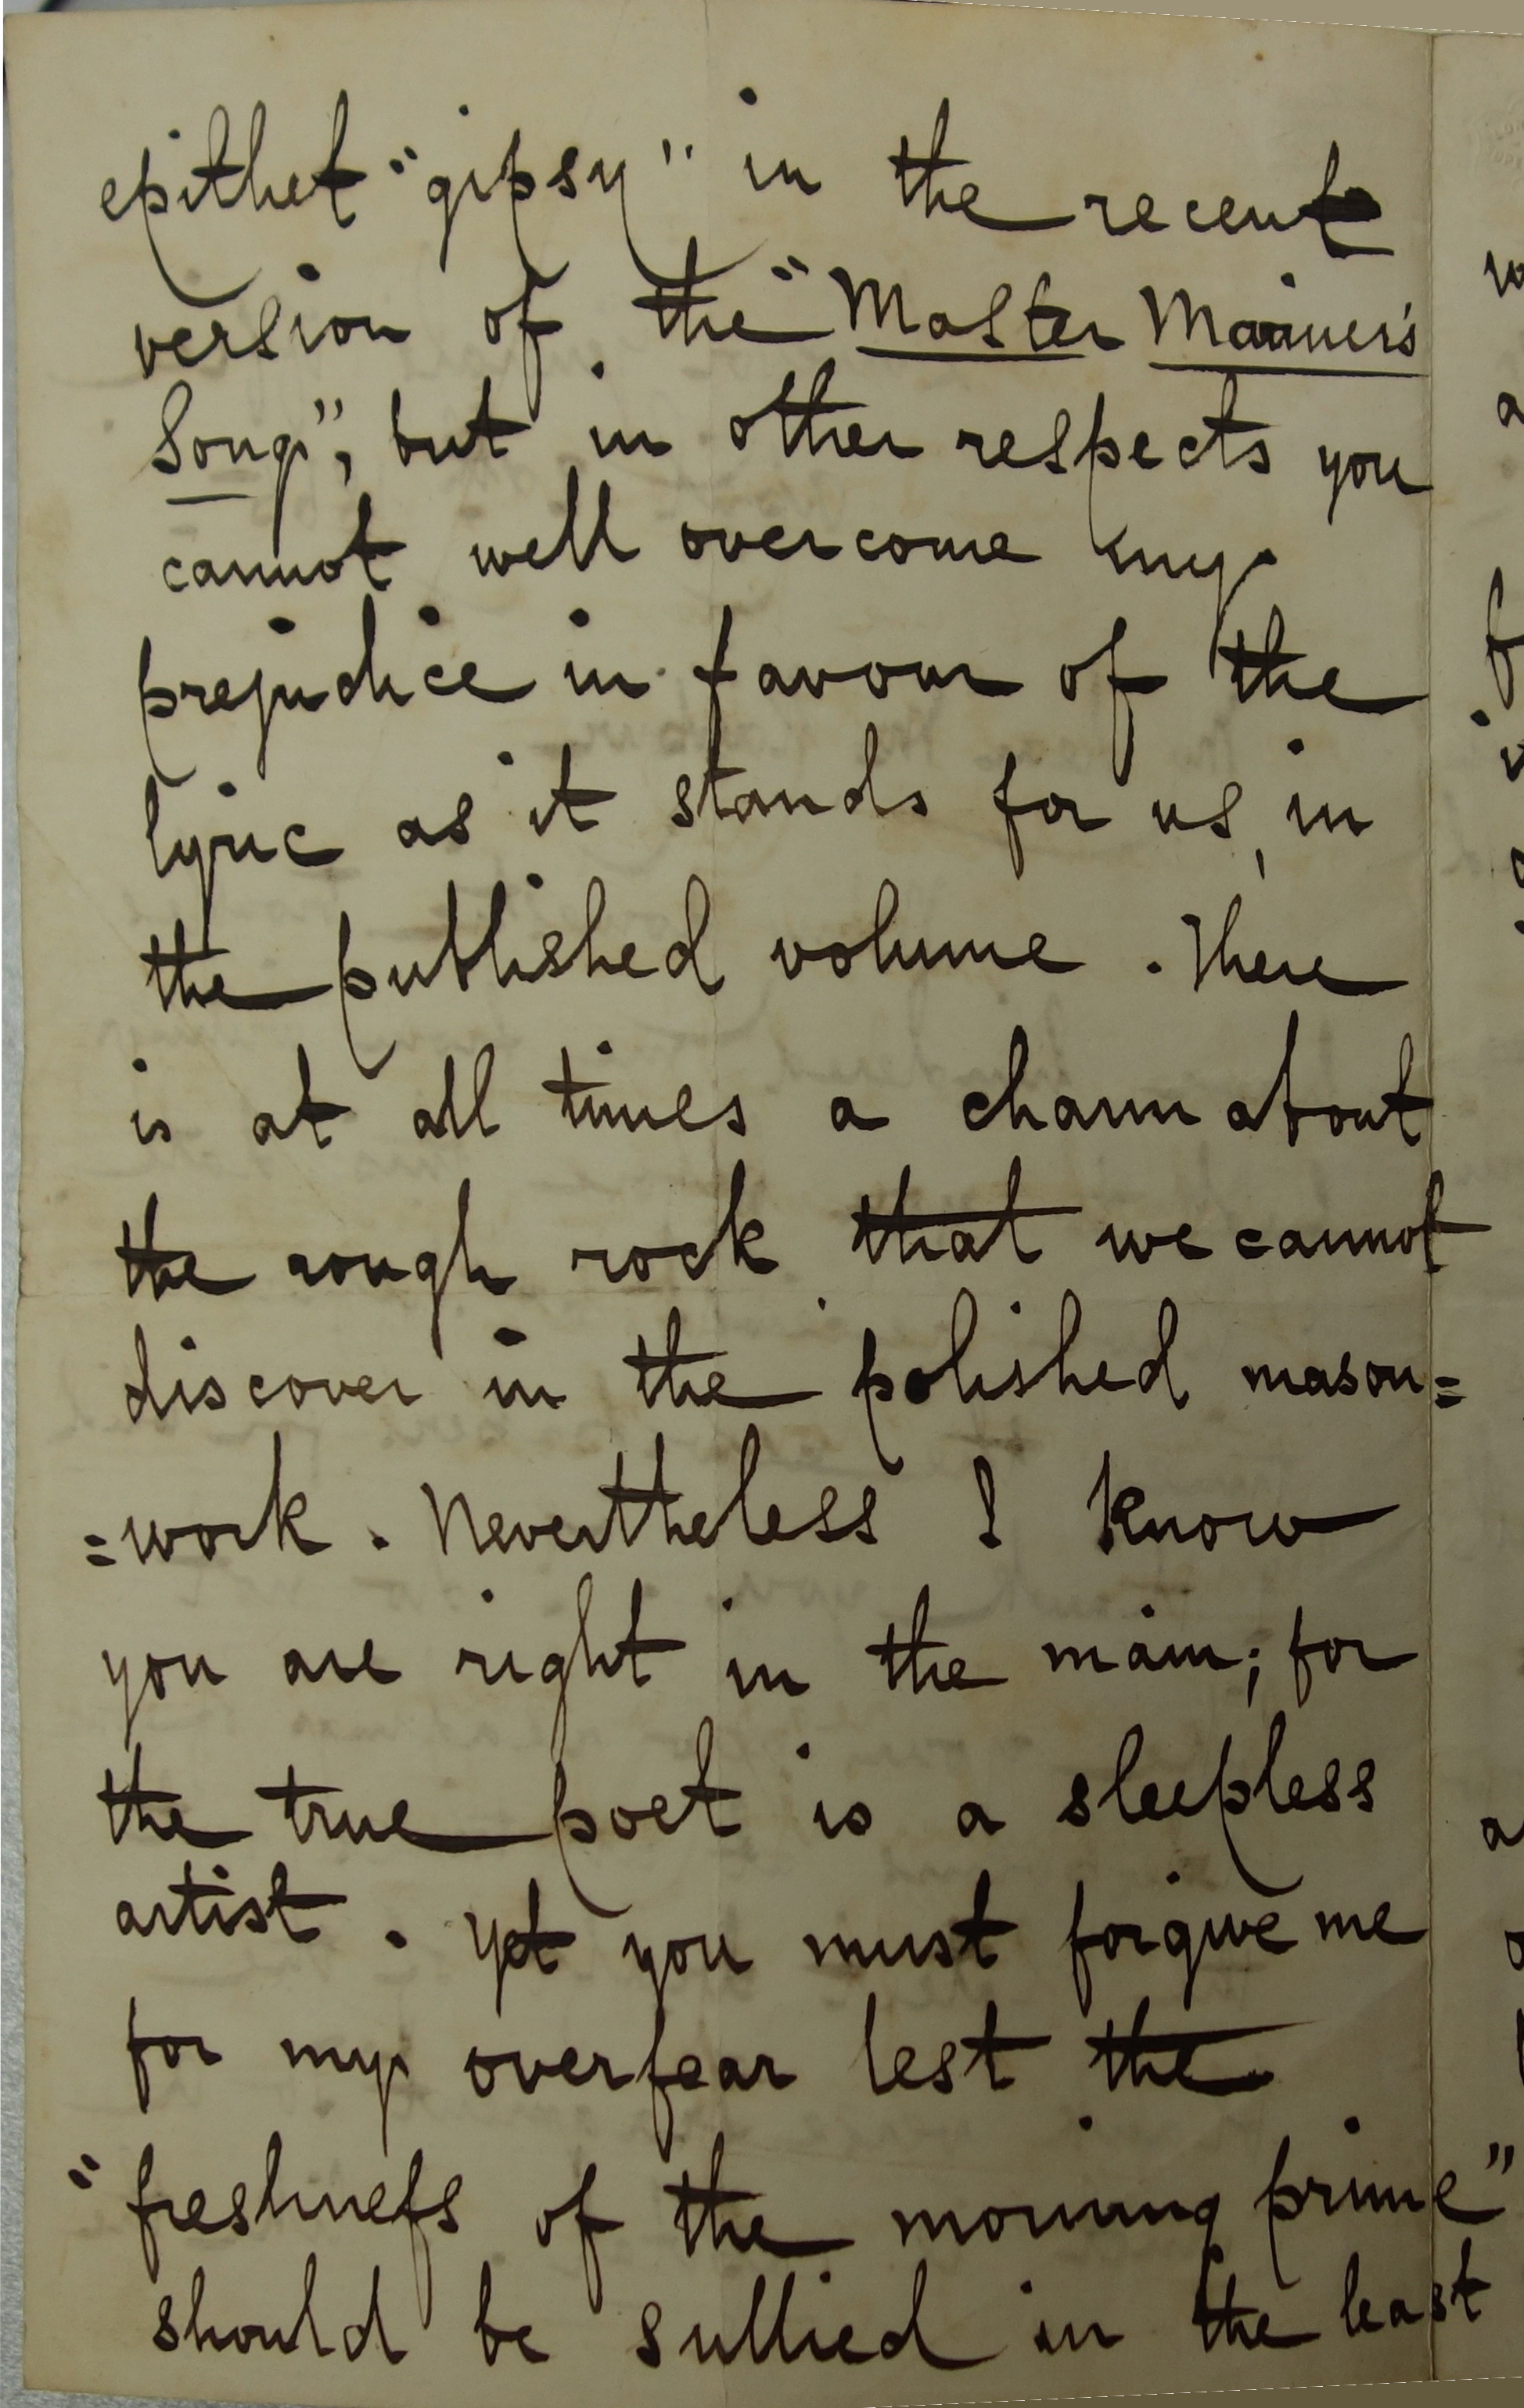 epithet "gipsy" in the recent
version of the "Master Mariner's
Song", but in other respects you
cannot well overcome my
prejudice in favour of the
lyric as it stands for us, in
the published volume. There
is at all times a charm about
the rough rock that we cannot
discover in the polished mason=
=work. Nevertheless I know
you are right in the main; for
the true poet is a sleepless
artist. Yet you must forgive me
for my overfear lest the
"freshness of the morning prime"
should be sullied in the least